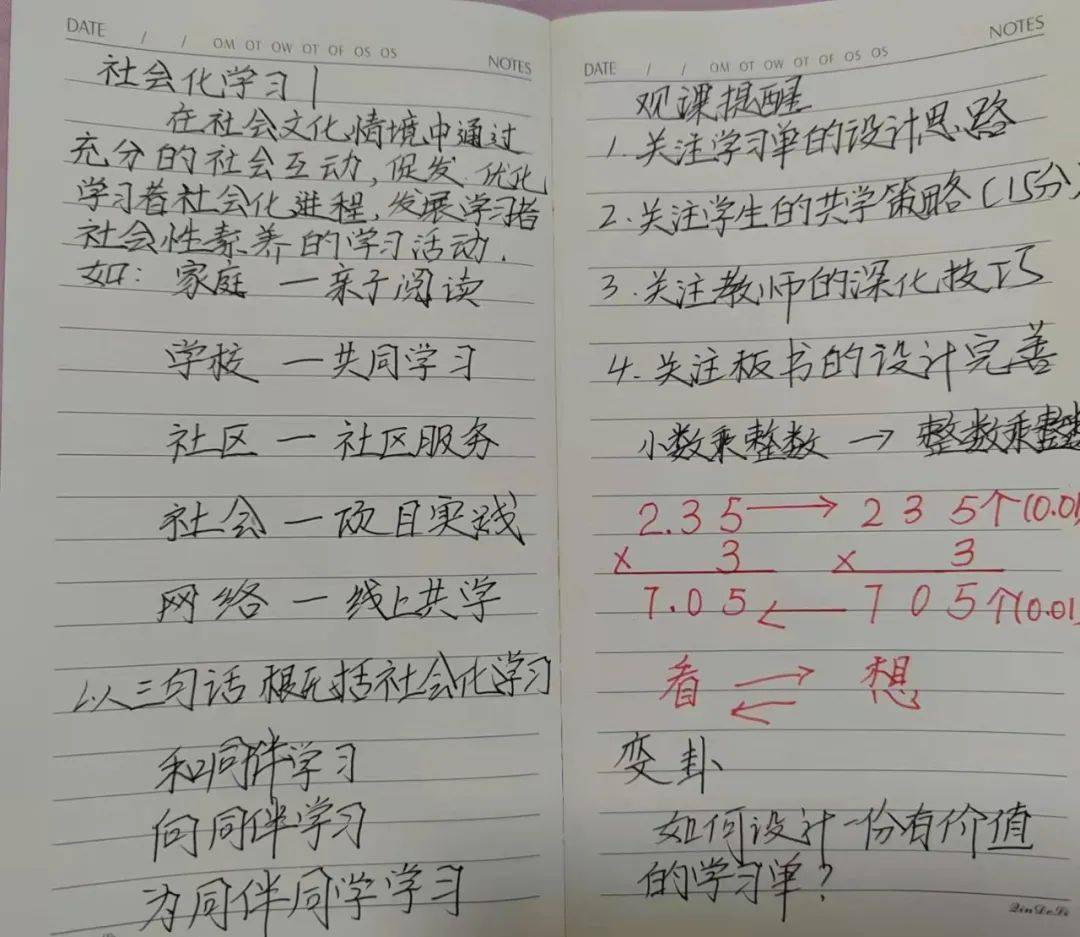 DATE / / OM OT OW OT OF OS OS NOTES
社会化学习
在社会文化情境中通过
充分的社会互动,促发、优化
学习者社会化进程,发展学习者
社会性素养的学习活动.
如: 家庭 — 亲子阅读
学校 — 共同学习
社区 — 社区服务
社会 — 项目实践
网络 — 线上共学
1.以三句话概括社会化学习
和同伴学习
向同伴学习
为同伴同学学习
DATE / / OM OT OW OT OF OS OS NOTES
观课提醒
1.关注学习单的设计思路
2.关注学生的共学策略(15分)
3.关注教师的深化技巧
4.关注板书的设计完善
小数乘整数 → 整数乘整数
2.35 → 235个(0.01)
× 3 × 3
7.05 ← 705个(0.01)
看 ⇄ 想
变卦
如何设计一份有价值
的学习单?
QinDeLi